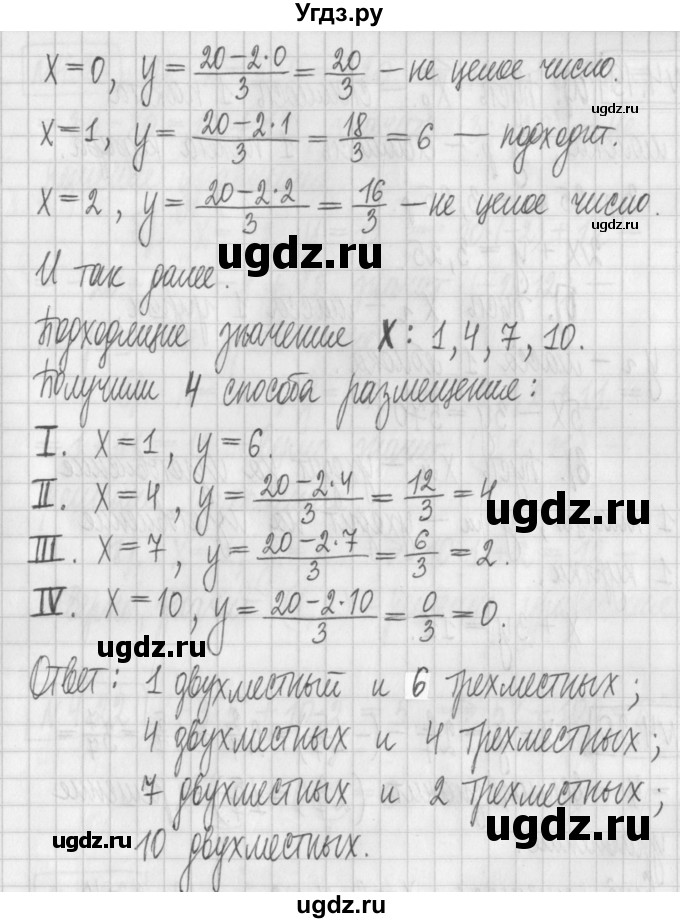 Угдз.ру
x=0, y = (20-2·0)/3 = 20/3 – не целое число.
ugdz.ru
x=1, y = (20-2·1)/3 = 18/3 = 6 — подходит.
ugdz.ru
x=2, y = (20-2·2)/3 = 16/3 – не целое число.
ugdz.ru
ugdz.ru
И так далее.
Подходящие значение x: 1, 4, 7, 10.
Получили 4 способа размещение:
ugdz.ru
I. x=1, y=6.
II. x=4, y = (20-2·4)/3 = 12/3 = 4
ugdz.ru
ugdz.ru
III. x=7, y = (20-2·7)/3 = 6/3 = 2.
IV. x=10, y = (20-2·10)/3 = 0/3 = 0.
ugdz.ru
Ответ: 1 двухместный и 6 трехместных;
ugdz.ru
4 двухместных и 4 трехместных;
7 двухместных и 2 трехместных;
ugdz.ru
ugdz.ru
10 двухместных.
ugdz.ru